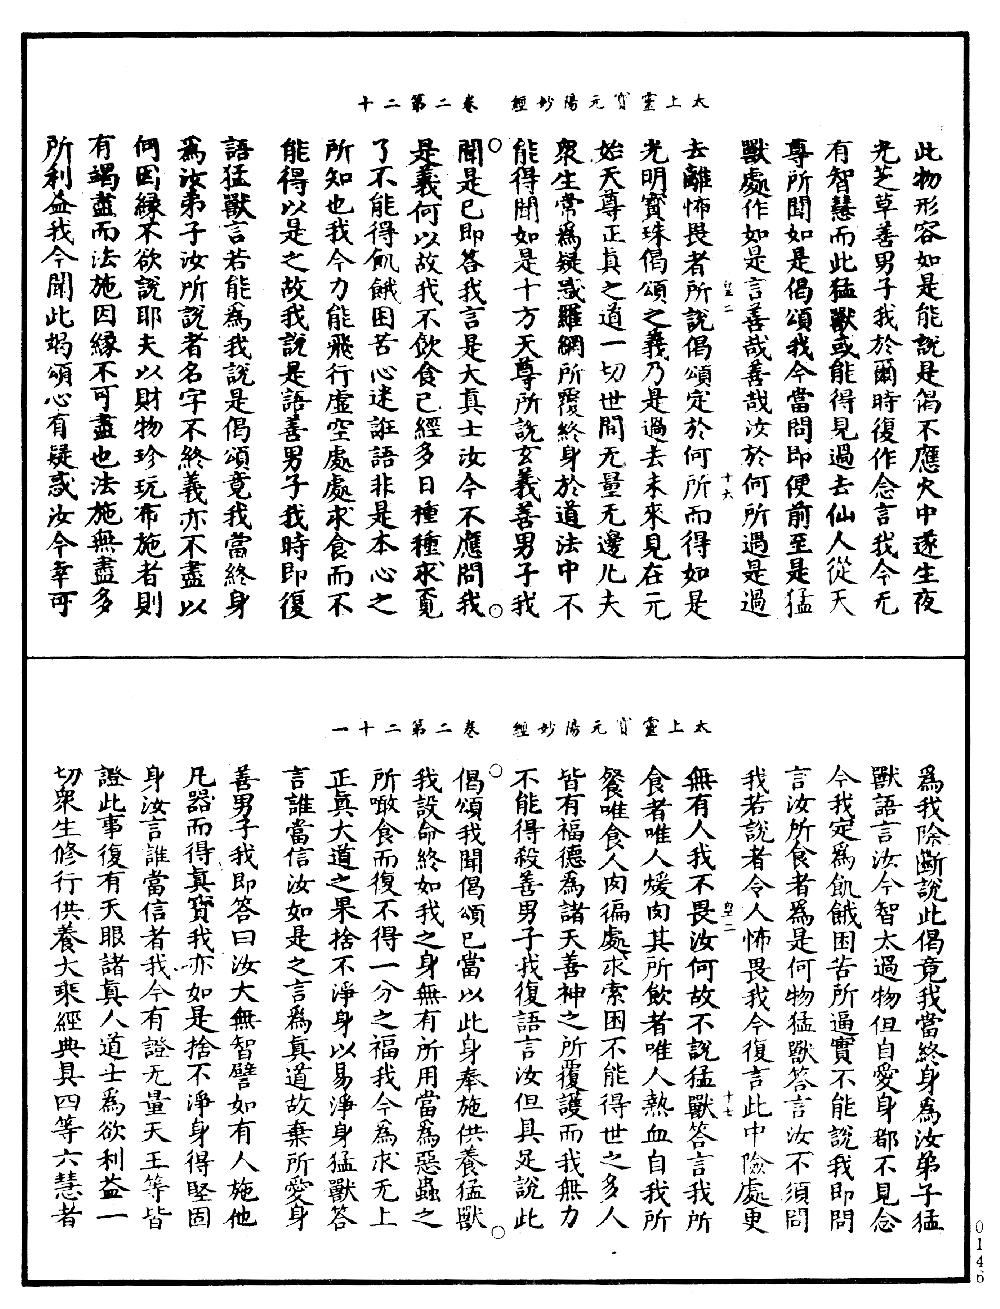 太上靈寶元陽妙經　卷二第二十
此物形容如是能說是偈不應火中遂生夜
光芝草善男子我於爾時復作念言我今无
有智慧而此猛獸或能得見過去仙人從天
尊所聞如是偈頌我今當問即便前至是猛
獸處作如是言善哉善哉汝於何所過是過
去離怖畏者所說偈頌定於何所而得如是
光明寶珠偈頌之義乃是過去未來見在元
始天尊正真之道一切世間无量无邊凡夫
衆生常爲疑惑羅網所覆終身於道法中不
能得聞如是十方天尊所說玄義善男子我
聞是已即答我言是大真士汝今不應問我
是義何以故我不飲食已經多日種種求覓
了不能得飢餓困苦心迷誑語非是本心之
所知也我今力能飛行虛空處處求食而不
能得以是之故我說是語善男子我時即復
語猛獸言若能為我說是偈頌竟我當終身
為汝弟子汝所說者名字不終義亦不盡以
何因緣不欲說耶夫以財物珍玩布施者則
有竭盡而法施因緣不可盡也法施無盡多
所利益我今聞此偈頌心有疑惑汝今幸可
十六
太上靈寶元陽妙經　卷二第二十一
爲我除斷說此偈竟我當終身爲汝弟子猛
獸語言汝今智太過物但自愛身都不見念
今我定爲飢餓困苦所逼實不能說我即問
言汝所食者爲是何物猛獸答言汝不須問
我若說者令人怖畏我今復言此中險處更
無有人我不畏汝何故不說猛獸答言我所
食者唯人煖肉其所飲者唯人熱血自我所
餐唯食人肉徧處求索困不能得世之多人
皆有福德爲諸天善神之所覆護而我無力
不能得殺善男子我復語言汝但具足說此
偈頌我聞偈頌已當以此身奉施供養猛獸
我設命終如我之身無有所用當爲惡蟲之
所噉食而復不得一分之福我今為求无上
正真大道之果捨不淨身以易淨身猛獸答
言誰當信汝如是之言爲真道故棄所愛身
善男子我即答曰汝大無智譬如有人施他
凡器而得真寶我亦如是捨不淨身得堅固
身汝言誰當信者我今有證无量天王等皆
證此事復有天眼諸真人道士爲欲利益一
切衆生修行供養大乘經典具四等六慧者
十七
0146